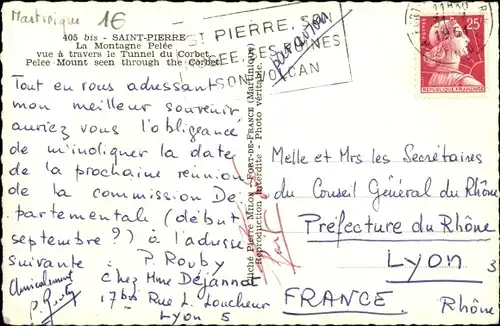 Martinique 1€
405 bis - SAINT-PIERRE
La Montagne Pelée
vue à travers le Tunnel du Corbet
Pelee Mount seen through the Corbet
ST PIERRE, S
SON VOLCAN
par avion
25F
REPUBLIQUE FRANÇAISE
Tout en vous adressant
mon meilleur souvenir
auriez vous l'obligeance
de m'indiquer la date
de la prochaine réunion
de la commission Dé
partementale (début
septembre ?) à l'adresse
suivante : P. Rouby
chez Mme Déjannot
17 bis Rue L. Loucheur
Lyon 5
Amicalement
P. Rouby
Cliché Pierre MILON - FORT-DE-FRANCE (Martinique)
Reproduction interdite - Photo véritable.
Melle et Mrs les Secrétaires
du Conseil Général du Rhône
Préfecture du Rhône
Lyon 3
FRANCE. Rhône